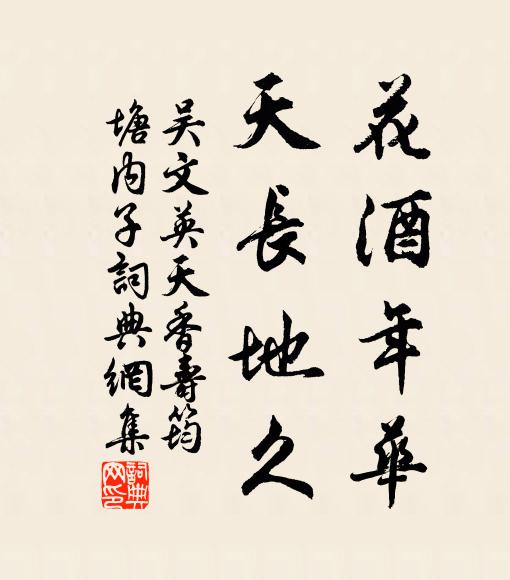 花酒年華
天長地久
吳文英天香壽筠
塘內子詞典網集
詞典網印